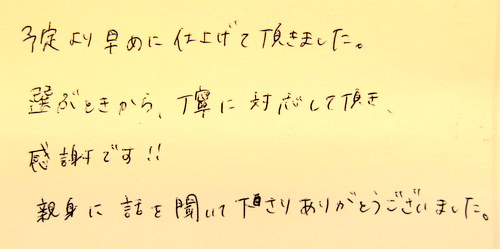 予定より早めに仕上げて頂きました。
選ぶときから、丁寧に対応して頂き、
感謝です!!
親身に話を聞いて下さりありがとうございました。